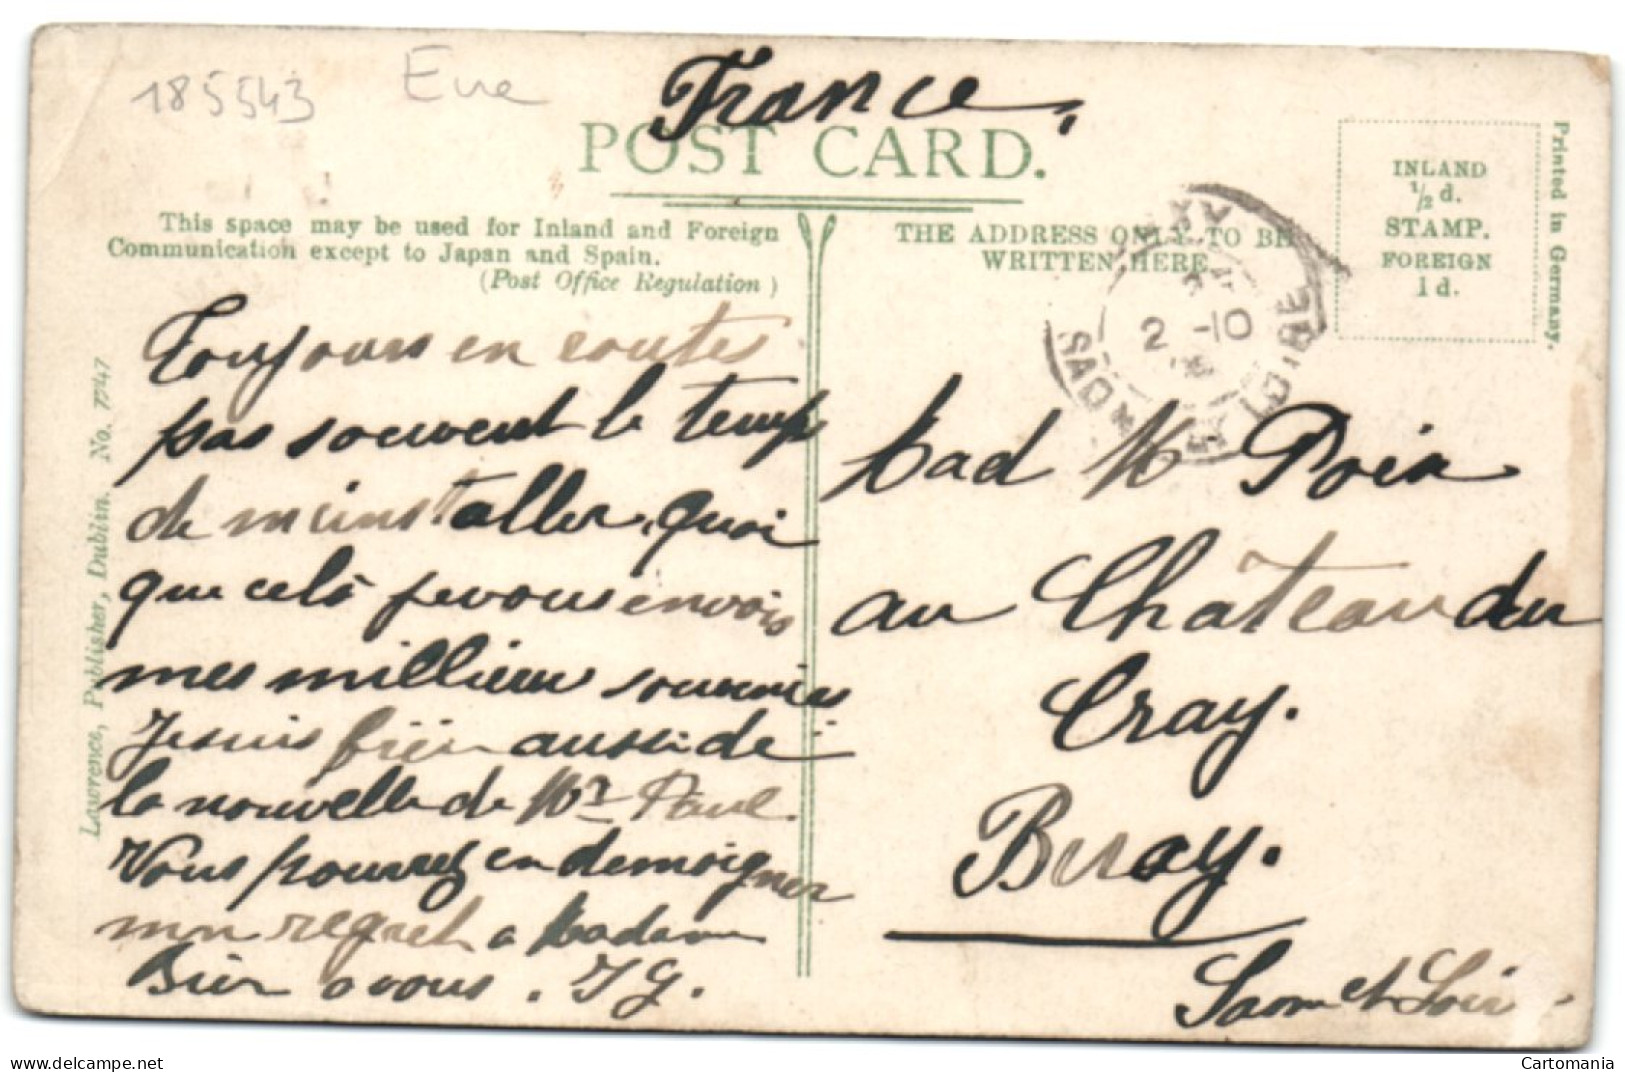 185543 Eire
France,
POST CARD.
This space may be used for Inland and Foreign
Communication except to Japan and Spain.
(Post Office Regulation)
THE ADDRESS ONLY TO BE
WRITTEN HERE
INLAND
½ d.
STAMP.
FOREIGN
1 d.
Printed in Germany.
Lawrence, Publisher, Dublin. No. 7747
2 -10
SAONE ET LOIRE
Toujours en routes
pas souvent le temps
de m'installer, quoi
que celà je vous envois
mes millieur souvenirs
Je suis bien aussi de
la nouvelle de Mr Paul.
Vous pourrez en demoigner
mon regret a Madame
Bien a vous. JG.
Mad M Poix
au Château du
Cray.
Buxy.
Saone et Loire
delcampe.net
EUR
Cartomania